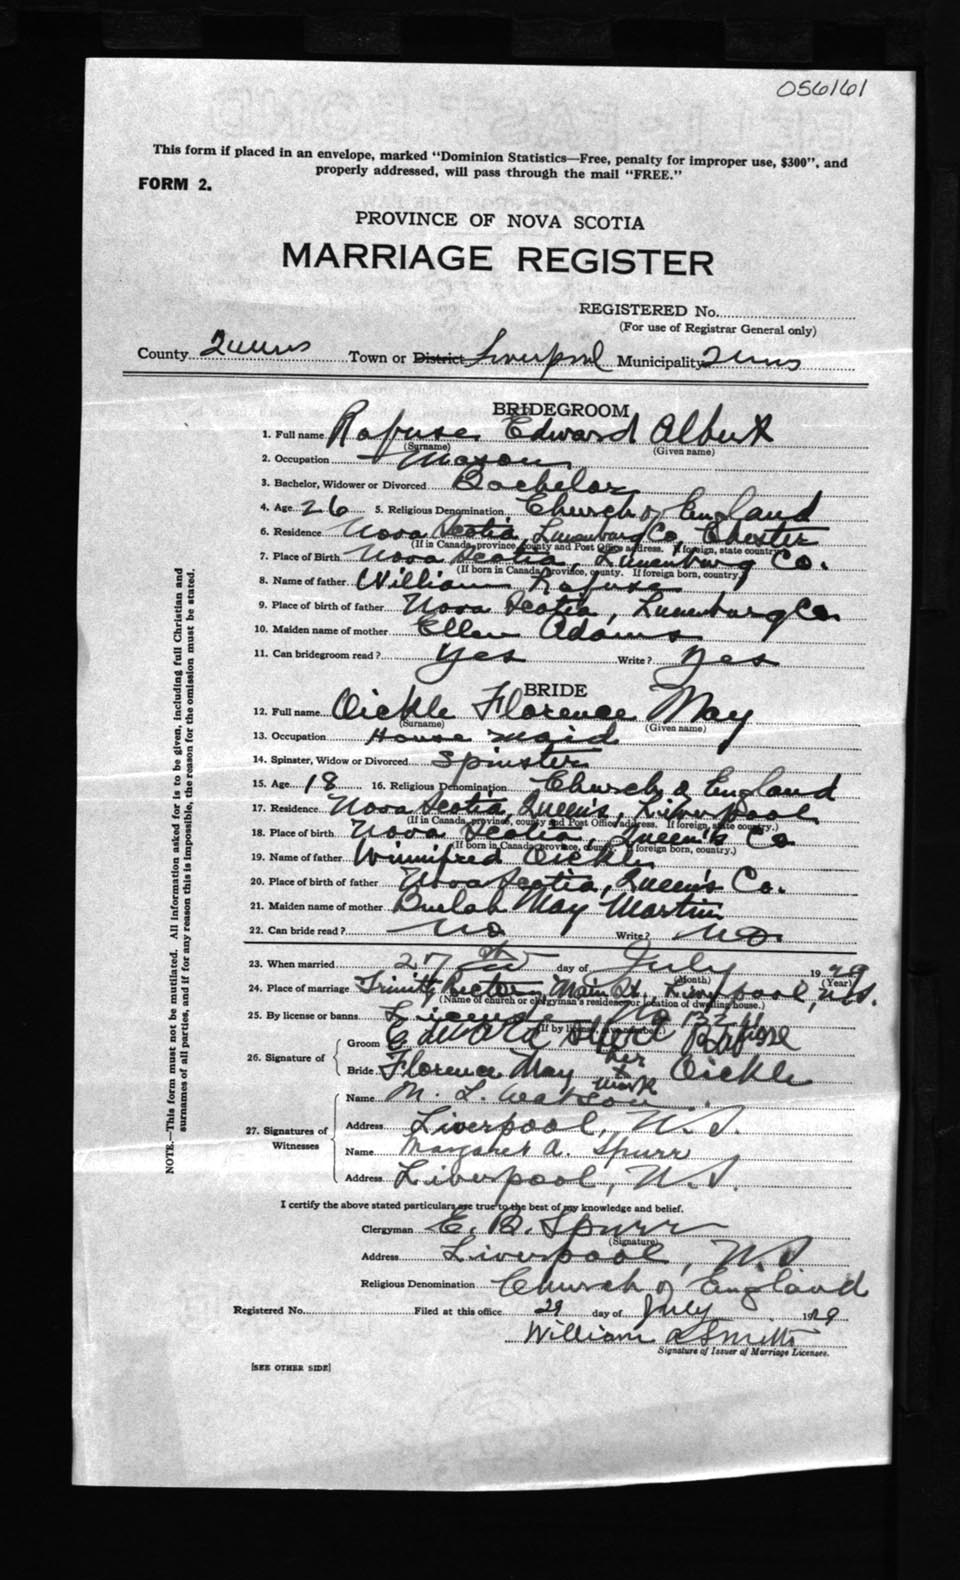 056161
This form if placed in an envelope, marked "Dominion Statistics—Free, penalty for improper use, $300", and
properly addressed, will pass through the mail "FREE."
FORM 2.
PROVINCE OF NOVA SCOTIA
MARRIAGE REGISTER
REGISTERED No.
(For use of Registrar General only)
County Queens Town or District Liverpool Municipality Queens
BRIDEGROOM
1. Full name Rafuse, Edward Albert
(Surname) (Given name)
2. Occupation Mason
3. Bachelor, Widower or Divorced Bachelor
4. Age 26 5. Religious Denomination Church of England
6. Residence Nova Scotia, Lunenburg Co, Chester
(If in Canada, province, county and Post Office address. If foreign, state country.)
7. Place of Birth Nova Scotia, Lunenburg Co.
(If born in Canada, province, county. If foreign born, country.)
8. Name of father William Rafuse
9. Place of birth of father Nova Scotia, Lunenburg Co
10. Maiden name of mother Ellen Adams
11. Can bridegroom read? Yes Write? Yes
BRIDE
12. Full name Oickle Florence May
(Surname) (Given name)
13. Occupation House maid
14. Spinster, Widow or Divorced Spinster
15. Age 18 16. Religious Denomination Church of England
17. Residence Nova Scotia, Queen's, Liverpool
(If in Canada, province, county and Post Office address. If foreign, state country.)
18. Place of birth Nova Scotia, Queen's Co
(If born in Canada, province, county. If foreign born, country.)
19. Name of father Winnifred Oickle
20. Place of birth of father Nova Scotia, Queen's Co.
21. Maiden name of mother Beulah May Martin
22. Can bride read? No Write? No.
23. When married 27th day of July 1929
(Month) (Year)
24. Place of marriage Trinity Rectory Main St. Liverpool N.S.
(Name of church or clergyman's residence or location of dwelling house.)
25. By license or banns License No
(If by license, give number.)
26. Signature of
Groom Edward Albert Rafuse
her
Bride Florence May x Oickle
mark
27. Signatures of Witnesses
Name M. L. Watson
Address Liverpool, N.S.
Name Margaret A. Spurr
Address Liverpool, N.S.
I certify the above stated particulars are true to the best of my knowledge and belief.
Clergyman E. B. Spurr
(Signature)
Address Liverpool, N.S
Religious Denomination Church of England
Registered No. Filed at this office 29 day of July 1929
William Smith
Signature of Issuer of Marriage Licenses.
[SEE OTHER SIDE]
NOTE.—This form must not be mutilated. All information asked for is to be given, including full Christian and
surnames of all parties, and if for any reason this is impossible, the reason for the omission must be stated.